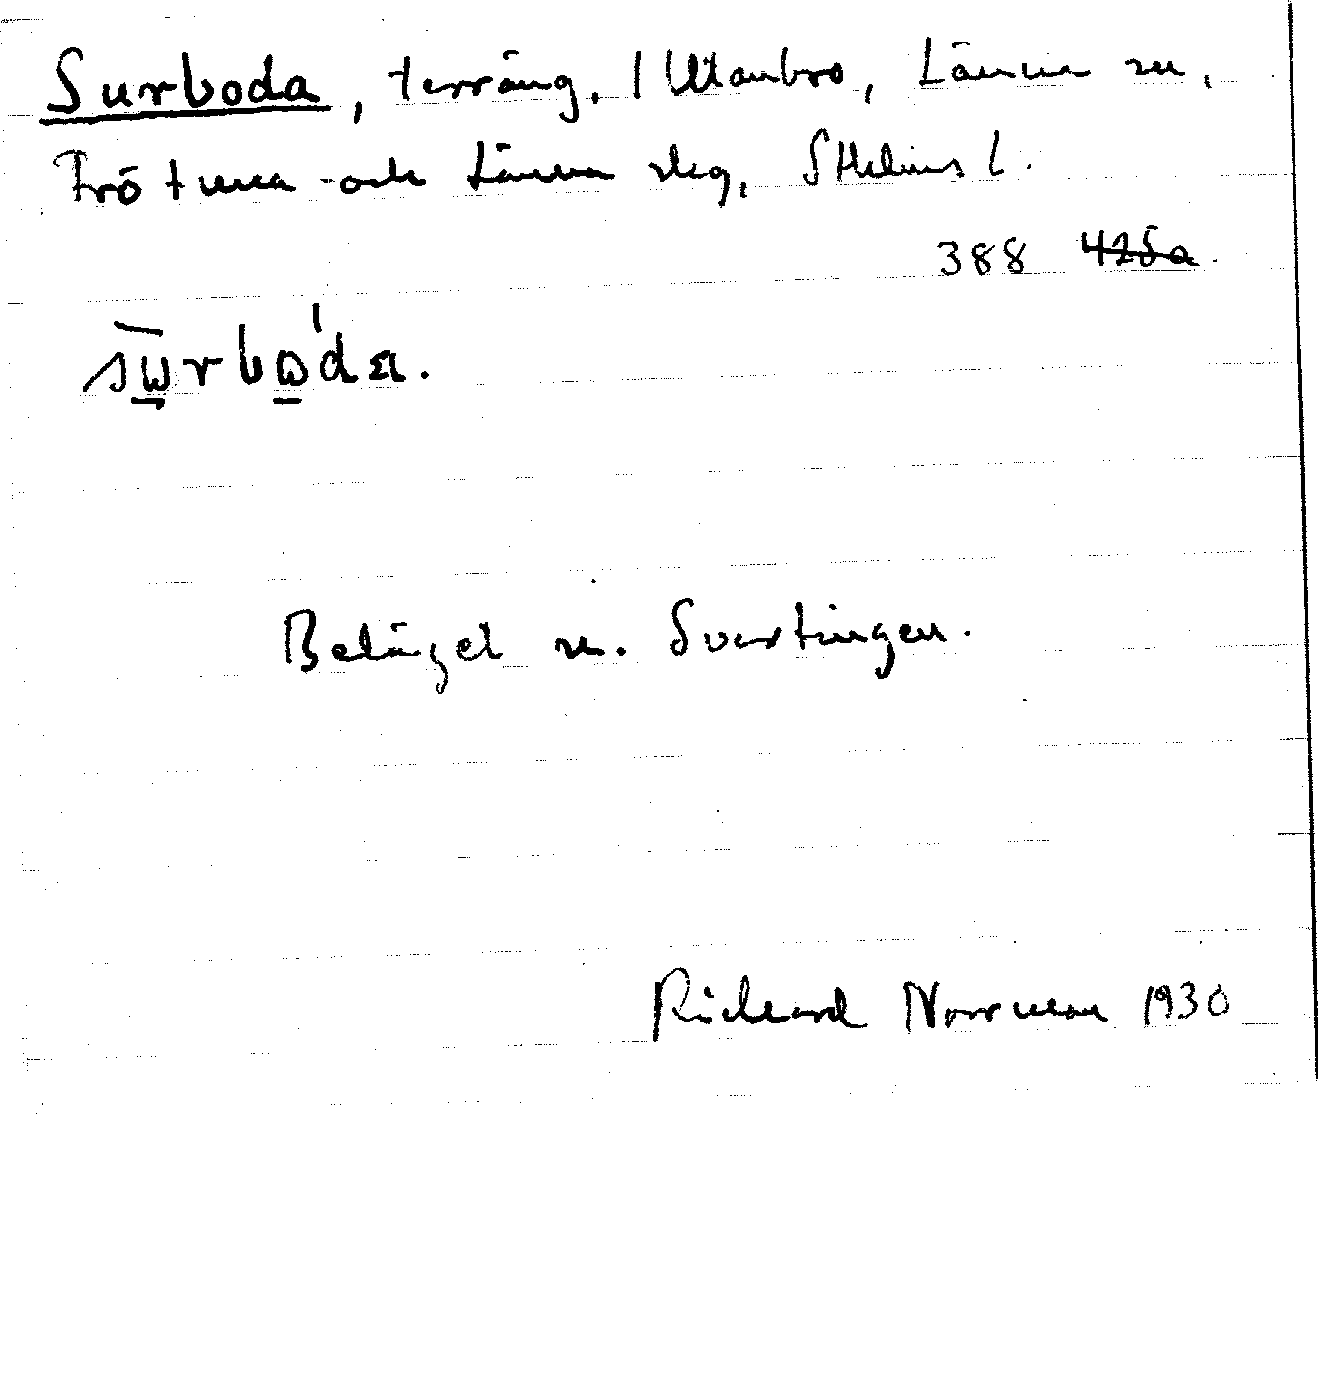 Surboda, terräng, 1 Utanbro, Länna sn,
Frötuna-och Länna skg, Sthlms l.
388 425a.
sürboda.
Beläget n. Svartingen.
Richard Norrman 1930